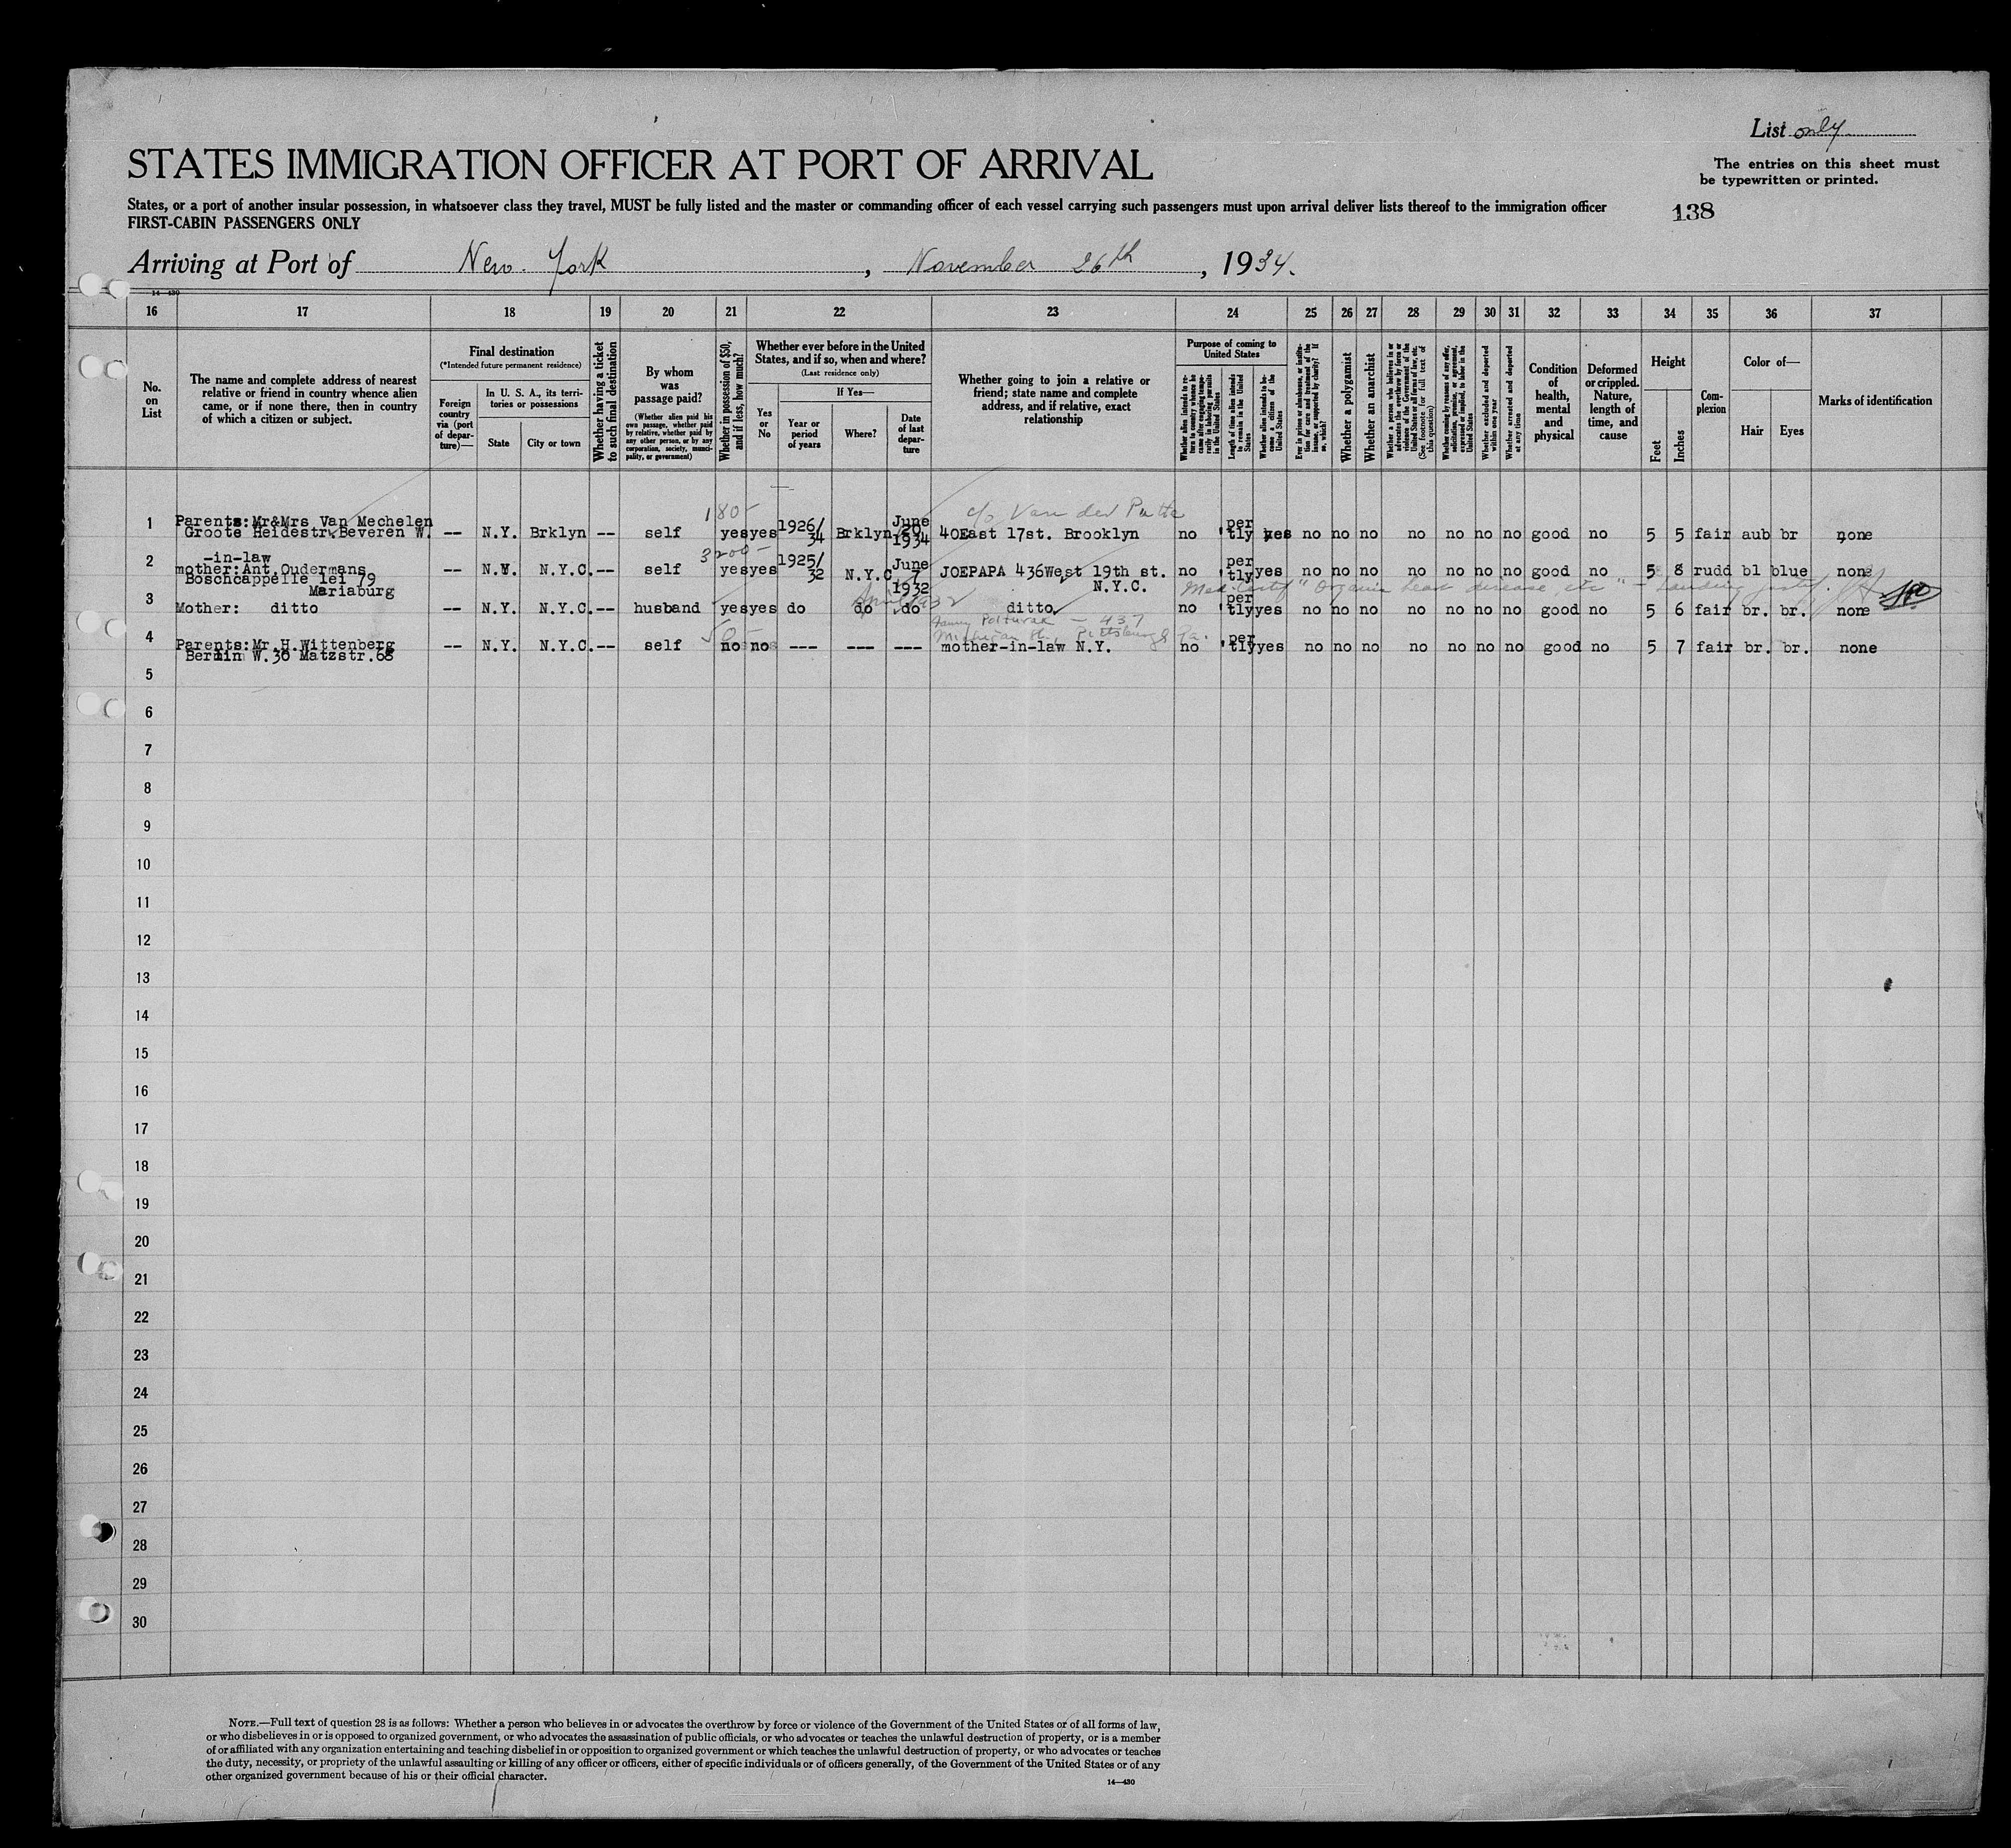 List only
STATES IMMIGRATION OFFICER AT PORT OF ARRIVAL
The entries on this sheet must
be typewritten or printed.
States, or a port of another insular possession, in whatsoever class they travel, MUST be fully listed and the master or commanding officer of each vessel carrying such passengers must upon arrival deliver lists thereof to the immigration officer
FIRST-CABIN PASSENGERS ONLY
138
Arriving at Port of New York, November 26th, 1934.
14—430
16 17 18 19 20 21 22 23 24 25 26 27 28 29 30 31 32 33 34 35 36 37
No. on List
The name and complete address of nearest relative or friend in country whence alien came, or if none there, then in country of which a citizen or subject.
Final destination
(*Intended future permanent residence)
Foreign country via (port of departure)—
In U. S. A., its territories or possessions
State
City or town
Whether having a ticket to such final destination
By whom was passage paid?
(Whether alien paid his own passage, whether paid by relative, whether paid by any other person, or by any corporation, society, municipality, or government)
Whether in possession of $50, and if less, how much?
Whether ever before in the United States, and if so, when and where?
(Last residence only)
Yes or No
If Yes—
Year or period of years
Where?
Date of last departure
Whether going to join a relative or friend; state name and complete address, and if relative, exact relationship
Purpose of coming to United States
Whether alien intends to return to country whence he came after engaging temporarily in laboring pursuits in the United States
Length of time alien intends to remain in the United States
Whether alien intends to become a citizen of the United States
Ever in prison or almshouse, or institution for care and treatment of the insane, or supported by charity? If so, which?
Whether a polygamist
Whether an anarchist
Whether a person who believes in or advocates the overthrow by force or violence of the Government of the United States or all forms of law, etc. (See footnote for full text of this question)
Whether coming by reason of any offer, solicitation, promise, or agreement, expressed or implied, to labor in the United States
Whether excluded and deported within one year
Whether arrested and deported at any time
Condition of health, mental and physical
Deformed or crippled. Nature, length of time, and cause
Height
Feet
Inches
Complexion
Color of—
Hair
Eyes
Marks of identification
180- c/o Van der Putte
1 Parents:Mr&Mrs Van Mechelen
Groote Heidestr.Beveren W. -- N.Y. Brklyn -- self yes yes 1926/34 Brklyn June 20 1934 40East 17st. Brooklyn no per'tly yes no no no no no no no good no 5 5 fair aub br none
3200-
2 -in-law
mother:Ant.Oudermans
Boschcappelle lei 79
Mariaburg -- N.Y. N.Y.C. -- self yes yes 1925/32 N.Y.C. June 7 1932 JOEPAPA 436West 19th st. N.Y.C. no per'tly yes no no no no no no no good no 5 8 rudd bl blue none
April 1932 Med. Certif "Organic heart disease, etc"
3 Mother: ditto -- N.Y. N.Y.C. -- husband yes yes do do do ditto no per'tly yes no no no no no no no good no 5 6 fair br. br. none
50- Polturak — 437
Michigan St., Pittsburgh Pa.
4 Parents:Mr.H.Wittenberg
Berlin W.30 Matzstr.68 -- N.Y. N.Y.C. -- self no no --- --- --- mother-in-law N.Y. no per'tly yes no no no no no no no good no 5 7 fair br. br. none
5
6
7
8
9
10
11
12
13
14
15
16
17
18
19
20
21
22
23
24
25
26
27
28
29
30
NOTE.—Full text of question 28 is as follows: Whether a person who believes in or advocates the overthrow by force or violence of the Government of the United States or of all forms of law,
or who disbelieves in or is opposed to organized government, or who advocates the assassination of public officials, or who advocates or teaches the unlawful destruction of property, or is a member
of or affiliated with any organization entertaining and teaching disbelief in or opposition to organized government or which teaches the unlawful destruction of property, or who advocates or teaches
the duty, necessity, or propriety of the unlawful assaulting or killing of any officer or officers, either of specific individuals or of officers generally, of the Government of the United States or of any
other organized government because of his or their official character.
14—430